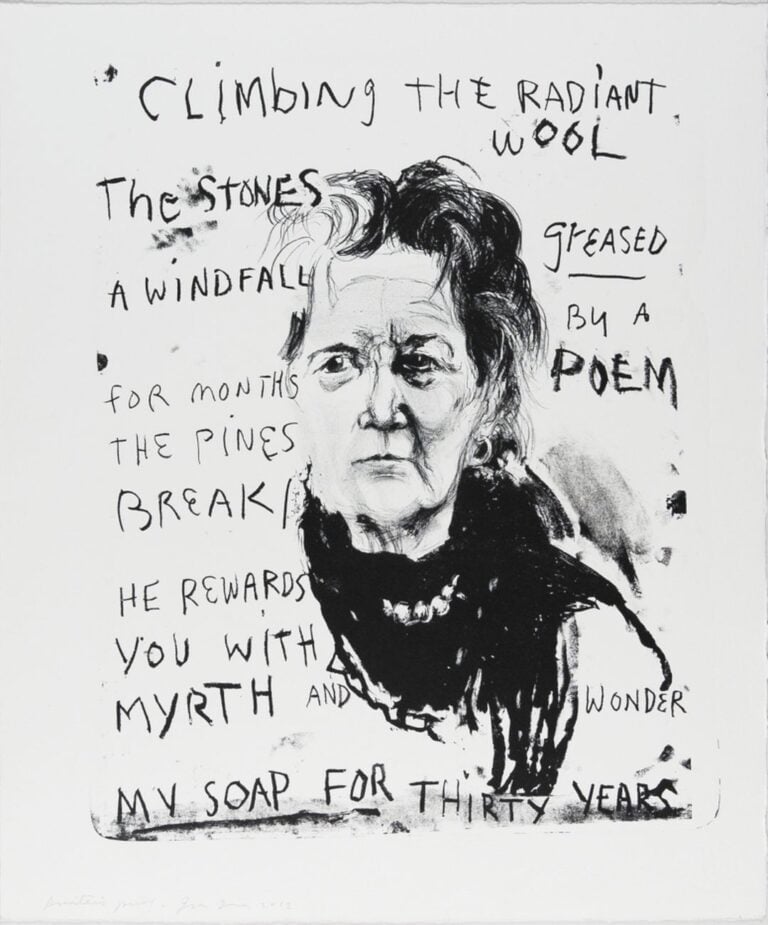 CLiMbiNg THE RADiANT
WOOL
The STONES
A WiNDFALL
grEASED
BY A
POEM
FOR MONTHS
THE PiNES
BREAK/
HE REWARDS
YOU WITH
MYRTH AND WONDER
MY SOAP FOR THiRTY YEARS
2012